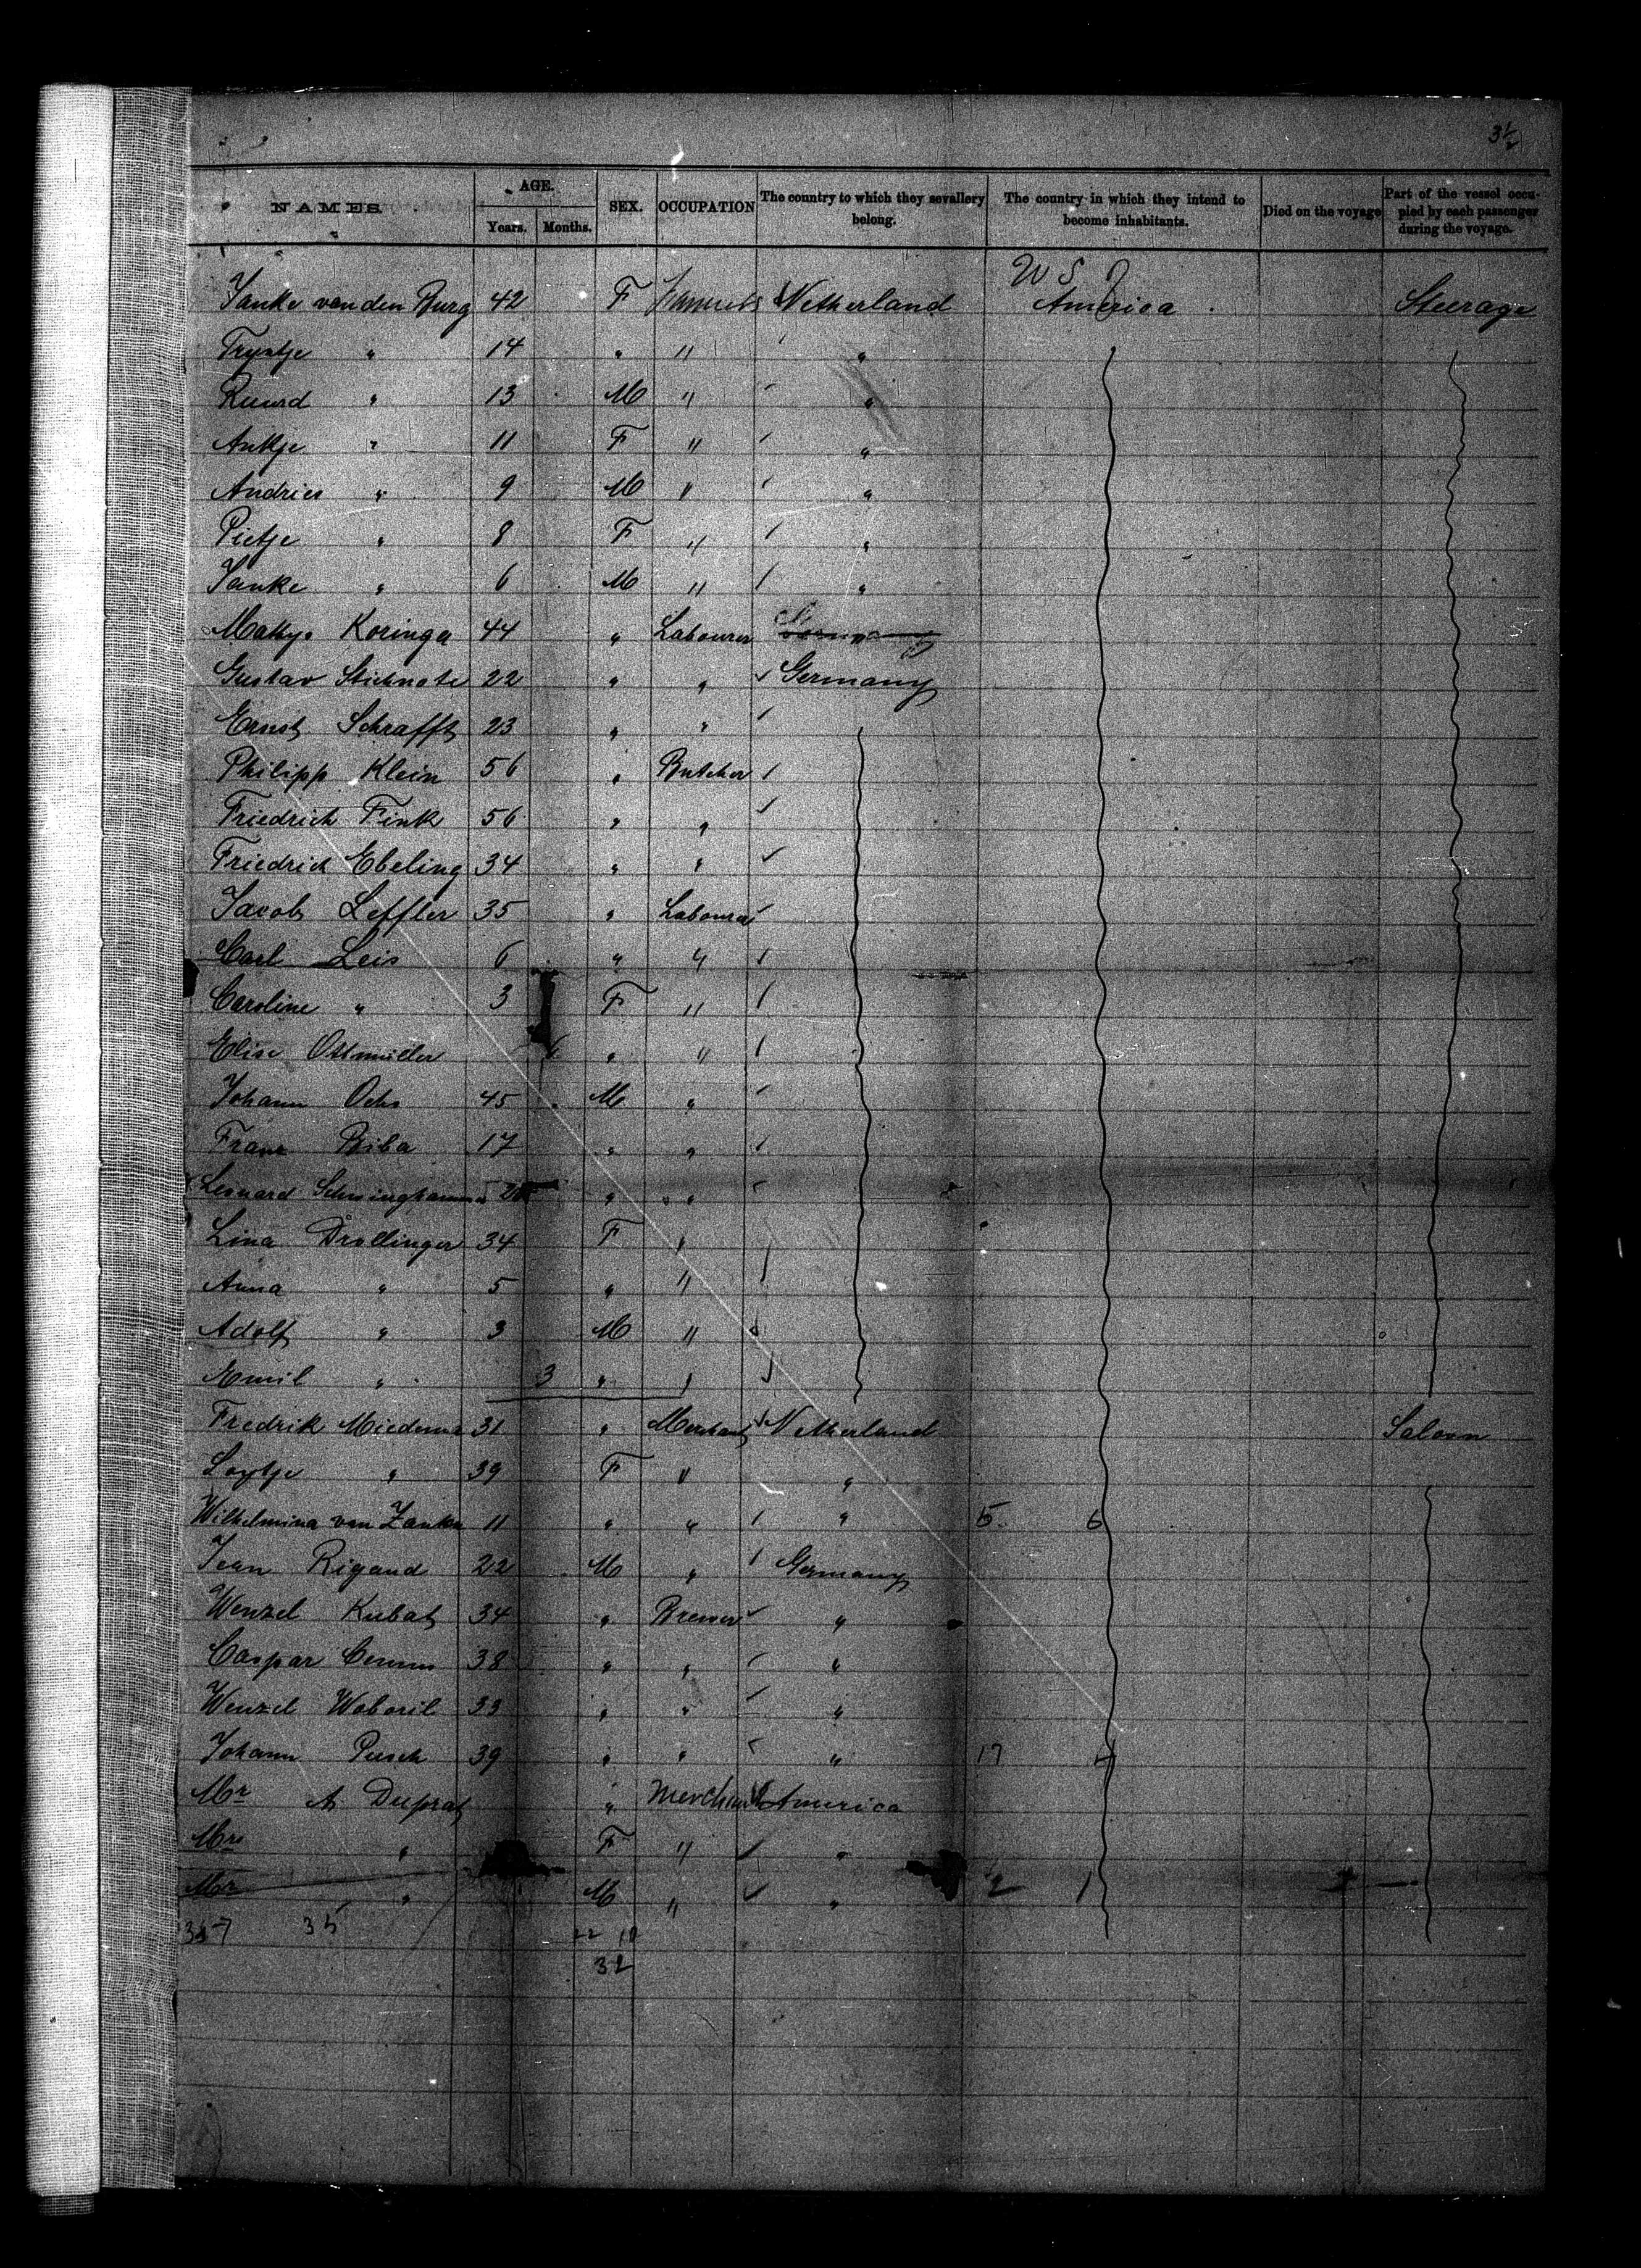 32
NAMES AGE. SEX. OCCUPATION The country to which they sevallery belong. The country in which they intend to become inhabitants. Died on the voyage Part of the vessel occupied by each passenger during the voyage.
Years. Months.
W S
Yanke van den Burg 42 F Netherland America Steerage
Tryntje " 14 " " "
Ruurd " 13 M " "
Antje " 11 F " "
Andries " 9 M " "
Pietje " 8 F " "
Yanke " 6 M " "
Koringa 44 " Labourer Germany
Gustav Stichnote 22 " " Germany
Ernst Schrafft 23 " "
Philipp Klein 56 " Butcher
Friedrich Fink 56 " "
Friedrich Ebeling 34 " "
Jacob Leffler 35 " Labourer
Carl Leis 6 " "
Caroline " 3 F "
Elise Ottmüller " "
Johann Ochs 45 M "
Franz Biba 17 " "
Leonard " "
Lina Drollinger 34 F "
Anna " 5 " "
Adolf " 3 M "
Emil " 3 " "
Fredrik Miedema 31 " Merchant Netherland Saloon
" 39 F " "
Wilhelmina van 11 " " " 5 6
Jean Rigaud 22 M " Germany
Wenzel Kubat 34 " Brewer "
Caspar 38 " " "
Wenzel Woboril 33 " " "
Johann Pusch 39 " " " 17 4
Mr A Duprat " Merchant America
Mrs " F " "
Mr " M " " 2 1
35
22 10
32